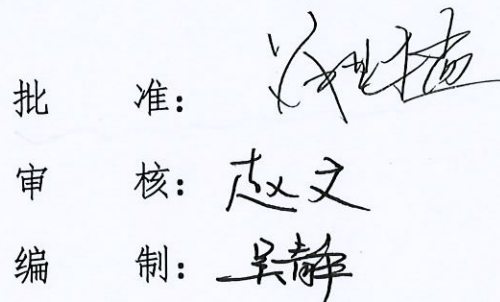 批 准：
审 核：赵文
编 制：吴静